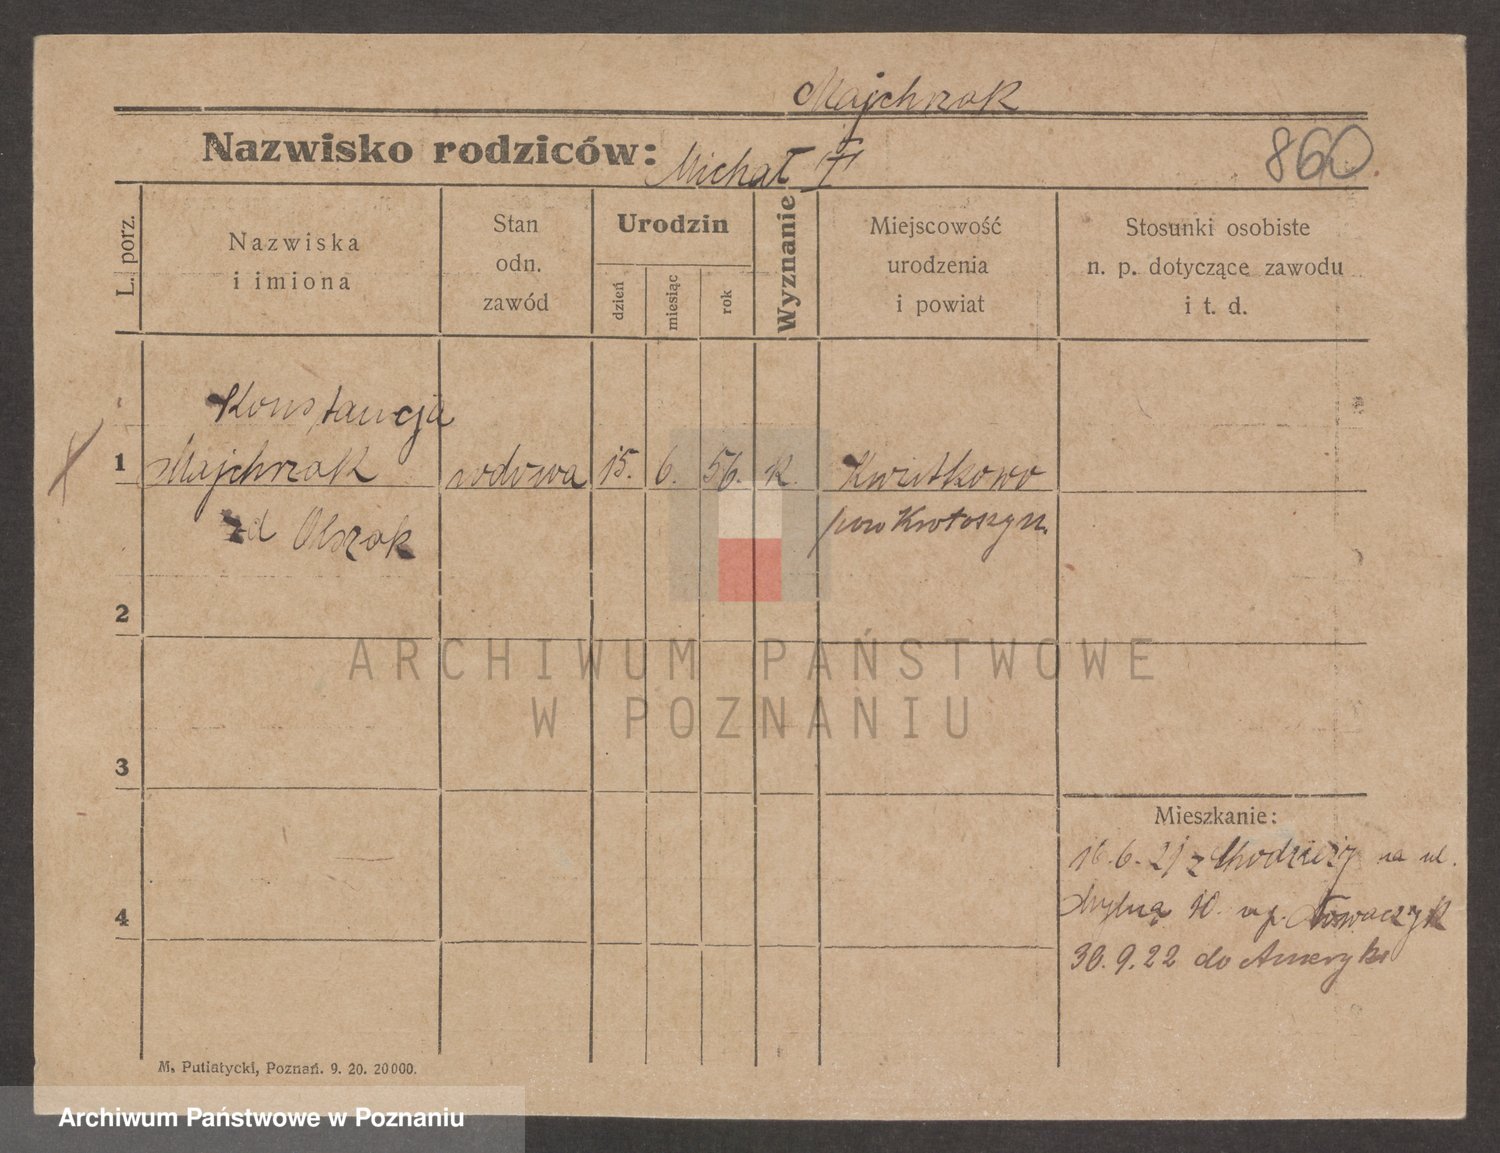 Majchrzak
Nazwisko rodziców: Michał
860.
L. porz.
Nazwiska
i imiona
Stan
odn.
zawód
Urodzin
dzień
miesiąc
rok
Wyznanie
Miejscowość
urodzenia
i powiat
Stosunki osobiste
n. p. dotyczące zawodu
i t. d.
Konstancja
1 Majchrzak wdowa 15. 6. 56. k. Kwiatkowo
zd Olszak pow Krotoszyn.
2
3
4
Mieszkanie:
16.6.21 z Chodzieży na ul.
10. Nowaczyk
30.9.22 do Ameryki
M. Putiatycki, Poznań. 9. 20. 20000.
ARCHIWUM PAŃSTWOWE
W POZNANIU
Archiwum Państwowe w Poznaniu